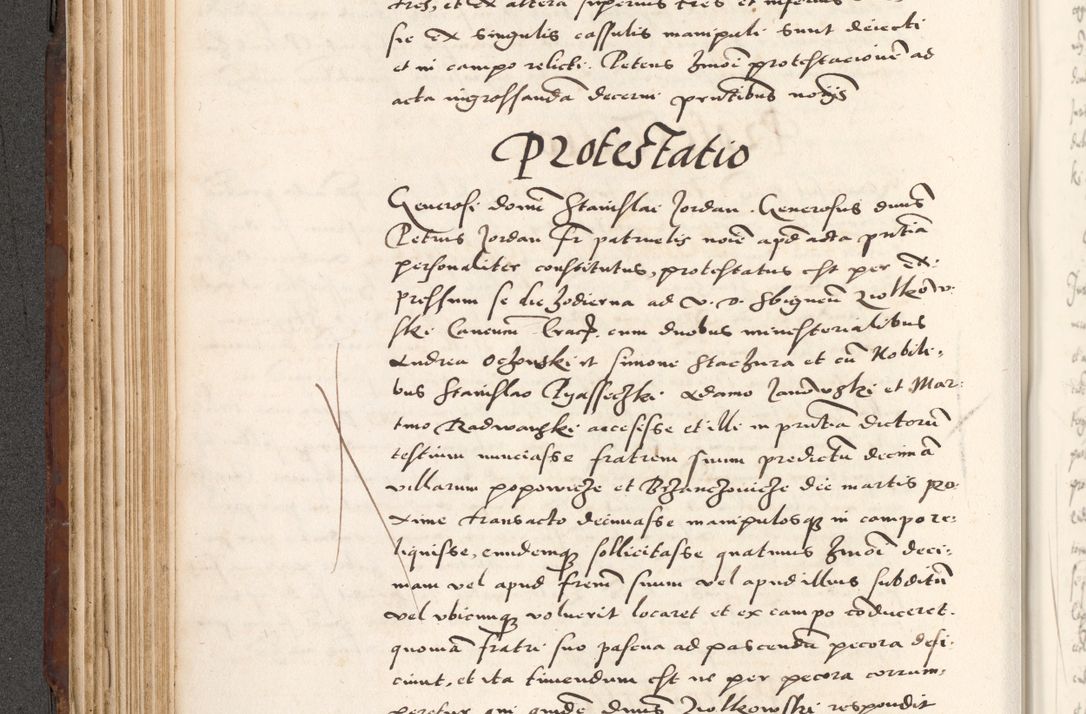 tres, et ex altera superius tres et inferius
sic ex singulis cassulis manipuli sunt deiecti
et in campo relicti. Petens hmoi protestacionem ad
acta ingrossanda decerni pntibus nonis
Protestatio
Generosi domi Stanislai Jordan. Generosus dnus
Petrus Jordan fr patruelis noie apd acta pntia
personaliter constitutus, protestatus est per ex-
pressum se die hodierna ad v. d. Sbigneum Ziolkow-
ski Canonicum Crac. cum duobus ministerialibus
Andrea et Simone Stachura et cu Nobili-
bus Stanislao Adamo Janowski et Mar-
tino Radwanski accesisse et illi in pntia dictoru
testium nunciasse fratrem suum predictu decima
villarum popowicze et die martis pro-
xime transacto decimasse manipulosq in campo re-
liquisse, eundemq sollicitasse quatinus hmoi deci-
mam vel apud frem suum vel apud illius subditu
vel vbicunq voluerit locaret et ex campo coduceret.
quoniam fratri suo pascua ad pascendu pecora defi-
ciunt, et ita timendum est ne per pecora corrum-
peretur qui quidem dnus Ziolkowski respondit